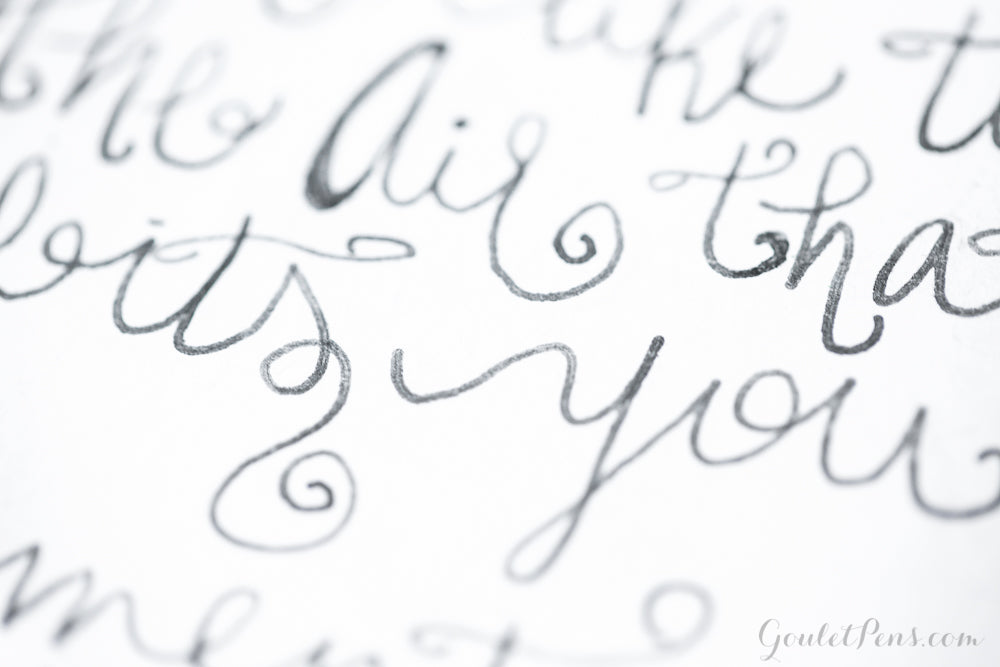 like t
the Air tha
bits you
ment
GouletPens.com